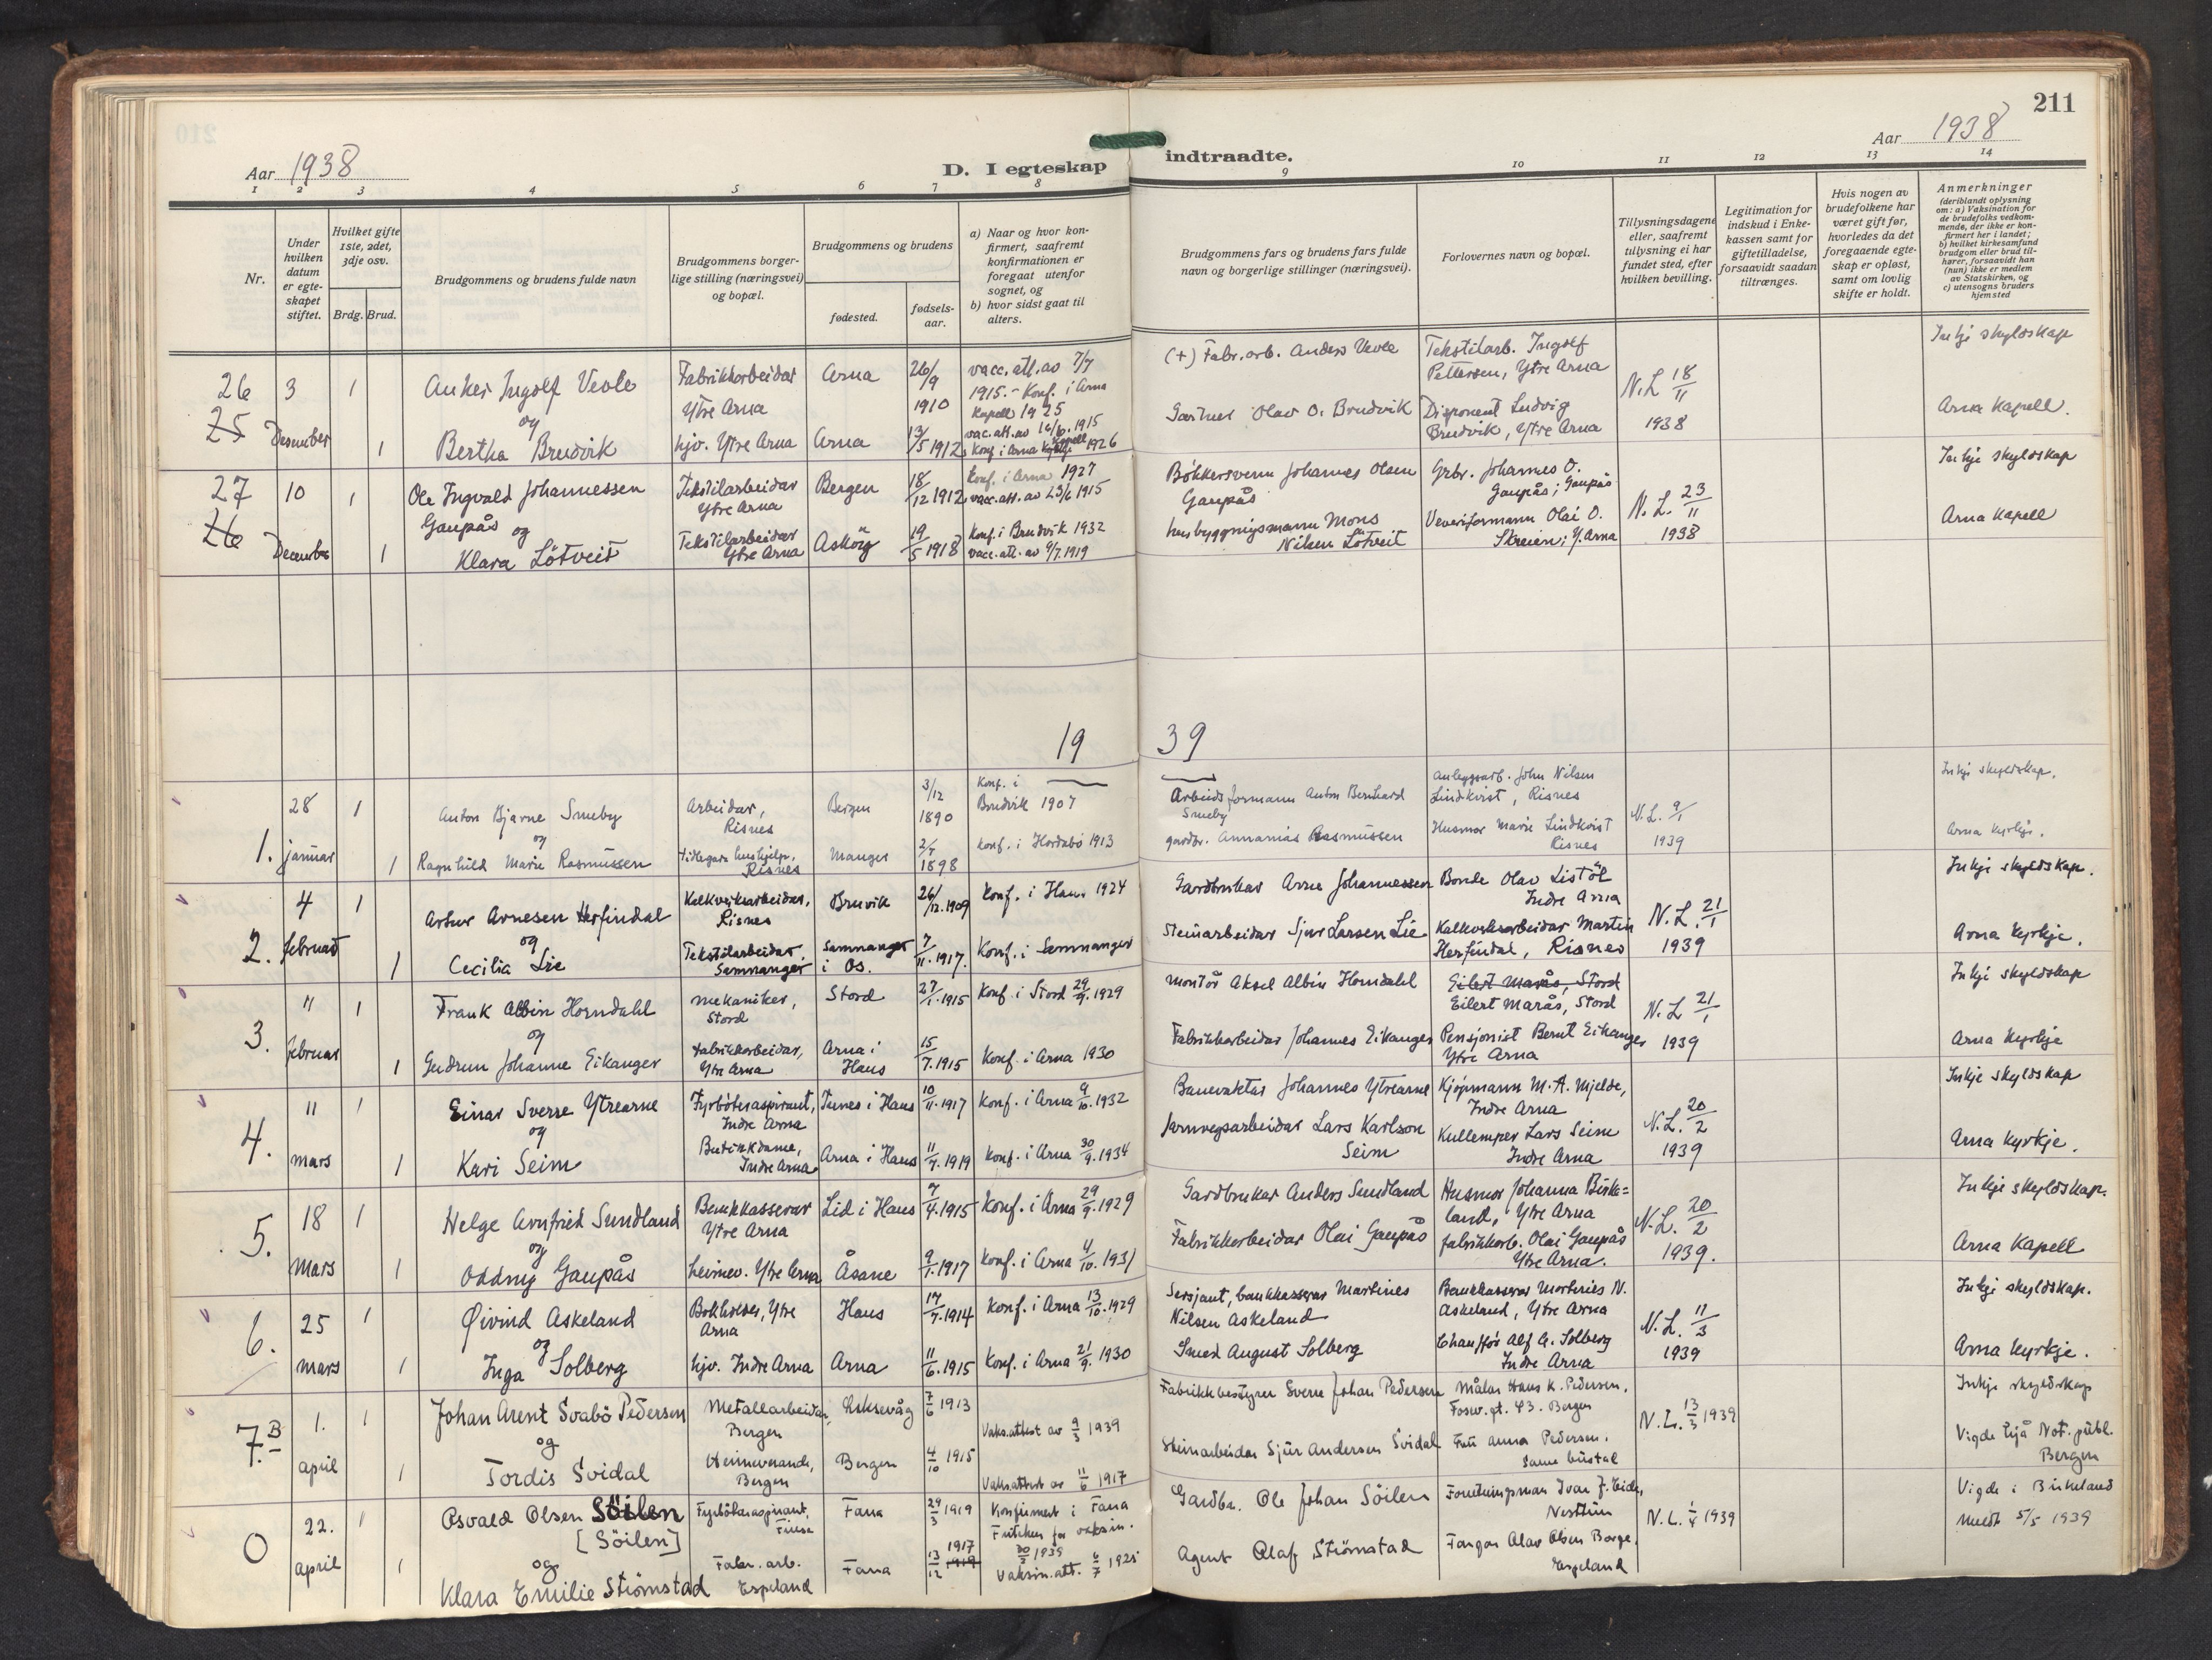 211
Aar 1938
D. I egteskap indtraadte.
Aar 1938
1 2 3 4 5 6 7 8 9 10 11 12 13 14
Nr.
Under hvilken datum er egteskapet stiftet.
Hvilket gifte 1ste, 2det, 3dje osv.
Brdg. Brud.
Brudgommens og brudens fulde navn
Brudgommens borgerlige stilling (næringsvei) og bopæl.
Brudgommens og brudens
fødested.
fødselsaar.
a) Naar og hvor konfirmert, saafremt konfirmationen er foregaat utenfor sognet, og
b) hvor sidst gaat til alters.
Brudgommens fars og brudens fars fulde navn og borgerlige stillinger (næringsvei).
Forlovernes navn og bopæl.
Tillysningsdagene eller, saafremt tillysning ei har fundet sted, efter hvilken bevilling.
Legitimation for indskud i Enkekassen samt for giftetilladelse, forsaavidt saadan tiltrænges.
Hvis nogen av brudefolkene har været gift før, hvorledes da det foregaaende egteskap er opløst, samt om lovlig skifte er holdt.
Anmerkninger (deriblandt oplysning om: a) Vaksination for de brudefolks vedkommende, der ikke er konfirmert her i landet; b) hvilket kirkesamfund brudgom eller brud tilhører, forsaavidt han (hun) ikke er medlem av Statskirken, og c) utensogns bruders hjemsted
26 25 3 Desember 1 Anker Ingolf Vevle Fabrikkarbeidar Ytre Arna Arna 26/9 1910 vacc.att. av 7/7 1915. - Konf. i Arna Kapell 1925 (+) Fabr.arb. Anders Vevle Tekstilarb. Ingolf Pettersen, Ytre Arna N.L. 18/11 1938 Inkje skyldskap
og
1 Bertha Brudvik hjv. Ytre Arna Arna 13/5 1912 vac.att. av 16/6. 1915 Konf. i Arna Kapell 1926 Gartner Olav O. Brudvik Disponent Ludvig Brudvik, Ytre Arna Arna Kapell.
27 26 10 Desember 1 Ole Ingvald Johannessen Gaupås Tekstilarbeidar Ytre Arna Bergen 18/12 1912 Konf. i Arna 1927 vacc.att. av 23/6 1915 Bøkkersvenn Johannes Olsen Gaupås Grbr. Johannes O. Gaupås; Gaupås N.L. 23/11 1938 Inkje skyldskap
og
1 Klara Lötveit Tekstilarbeidar Ytre Arna Asköy 19/5 1918 Konf. i Brudvik 1932 vacc.att. av 9/7. 1919 husbyggnigsmann Mons Nilsen Lötveit Veveriformann Olai O. Skreien; Y. Arna Arna Kapell
19 39
1. 28 januar 1 Anton Bjarne Smeby Arbeidar, Risnes Bergen 3/12 1890 Konf. i Brudvik 1907 Arbeidsformann Anton Bernhard Smeby Anleggsarb. John Nilsen Lindkvist, Risnes N.L. 9/1 1939 Inkje skyldskap.
og
1 Ragnhild Marie Rasmussen tidlegare hushjelp, Risnes Manger 2/7 1898 konf. i Hordabø 1913 gardbr. Annanias Rasmussen Husmor Marie Lindkvist Risnes Arna kyrkje.
2. 4 februar 1 Artur Arnesen Herfindal Kalkverksarbeidar, Risnes Bruvik 26/12. 1909 Konf. i Haus 1924 Gardbrukar Arne Johannessen Bonde Olav Listöl Indre Arna N.L. 21/1 1939 Inkje skyldskap.
og
1 Cecilia Lie Tekstilarbeidar, Samnanger Samnanger i Os. 7/11. 1917. Konf. i Samnanger Steinarbeidar Sjur Larsen Lie Kalkverksarbeidar Martin Herfindal, Risnes Arna kyrkje.
3. " februar 1 Frank Albin Horndahl mekaniker, Stord Stord 27/1. 1915 Konf. i Stord 29/9. 1929 montör Aksel Albin Horndahl Eilert Marås, Stord Eilert Marås, Stord N.L. 21/1 1939 Inkje skyldskap
og
1 Gudrun Johanne Eikanger fabrikkarbeidar, Ytre Arna Arna i Haus 15/7. 1915 Konf. i Arna 1930 Fabrikkarbeidar Johannes Eikanger Pensjonist Bernt Eikanger Ytre Arna Arna kyrkje
4. 11 mars 1 Einar Sverre Ytrearne Fyrböteraspirant, Indre Arna Tunes i Haus 10/11. 1917 Konf. i Arna 9/10. 1932 Banevaktar Johannes Ytrearne Kjöpmann M. A. Mjelde, Indre Arna N.L. 20/2 1939 Inkje skyldskap
og
1 Kari Seim Butikkdame, Indre Arna Arna i Haus 11/7. 1919 konf. i Arna 30/9. 1934 Jarnvegsarbeidar Lars Karlson Seim Kullemper Lars Seim Indre Arna Arna kyrkje.
5. 18 Mars 1 Helge Arnfred Sundland Bankkasserar Ytre Arna Lid i Haus 7/4. 1915 Konf. i Arna 29/9. 1929 Gardbrukar Anders Sundland Husmor Johanna Birkeland, Ytre Arna N.L. 20/2 1939. Inkje skyldskap.
og
1 Oddny Gaupås heimev. Ytre Arna Åsane 9/1. 1917 Konf. i Arna 4/10. 1931 Fabrikkarbeidar Olai Gaupås fabrikkarb. Olai Gaupås Ytre Arna. Arna Kapell
6. 25 mars 1 Øivind Askeland Bokholder, Ytre Arna Haus 17/7. 1914 Konf. i Arna 13/10. 1929 Sersjant, bankkasserar Martines Nilsen Askeland Bankkasserar Martinies N. Askeland, Ytre Arna N.L. 11/3 1939 Inkje skyldskap.
og
1 Inga Solberg hjv. Indre Arna Arna 11/6. 1915 Konf. i Arna 21/9. 1930 Smed August Solberg Chauffør Alf A. Solberg Indre Arna Arna kyrkje.
7. B 1. april 1 Johan Arent Svabö Pedersen Metallarbeidar, Bergen Laksevåg 7/6 1913 Vaks.attest av 9/3 1939 Fabrikkbestyrer Sverre Johan Pedersen Målar Hans K. Pedersen. Fosw.gt. 43. Bergen N.L. 13/3 1939 Inkje skyldskap
og
1 Tordis Svidal Heimeverande, Bergen Bergen 4/10 1915 Vaks.attest av 11/6 1917 Steinarbeidar Sjur Andersen Svidal Frü Anna Pedersen. Same bustad Vigde hjå Not. publ. Bergen
0 22. april 1 Asvald Olsen Söilen [Söilen] Fyrböteraspirant, Finse Fana 29/3 1919 Konfirmert i Fana Friteken for vaksin. 30/3 1939 Gardbr. Ole Johan Söilen Forretningsman Ivar J. Eide, Nesttun N.L. 1/4 1939 Vigde i Birkeland meldt 5/5 1939
og
1 Klara Emilie Strömstad Fabr. arb. Espeland Fana 13/12 1917 1919 Vaksin.att. 6/7 1925 Agent Olaf Strömstad Fargar Olav Olsen Borge, Espeland